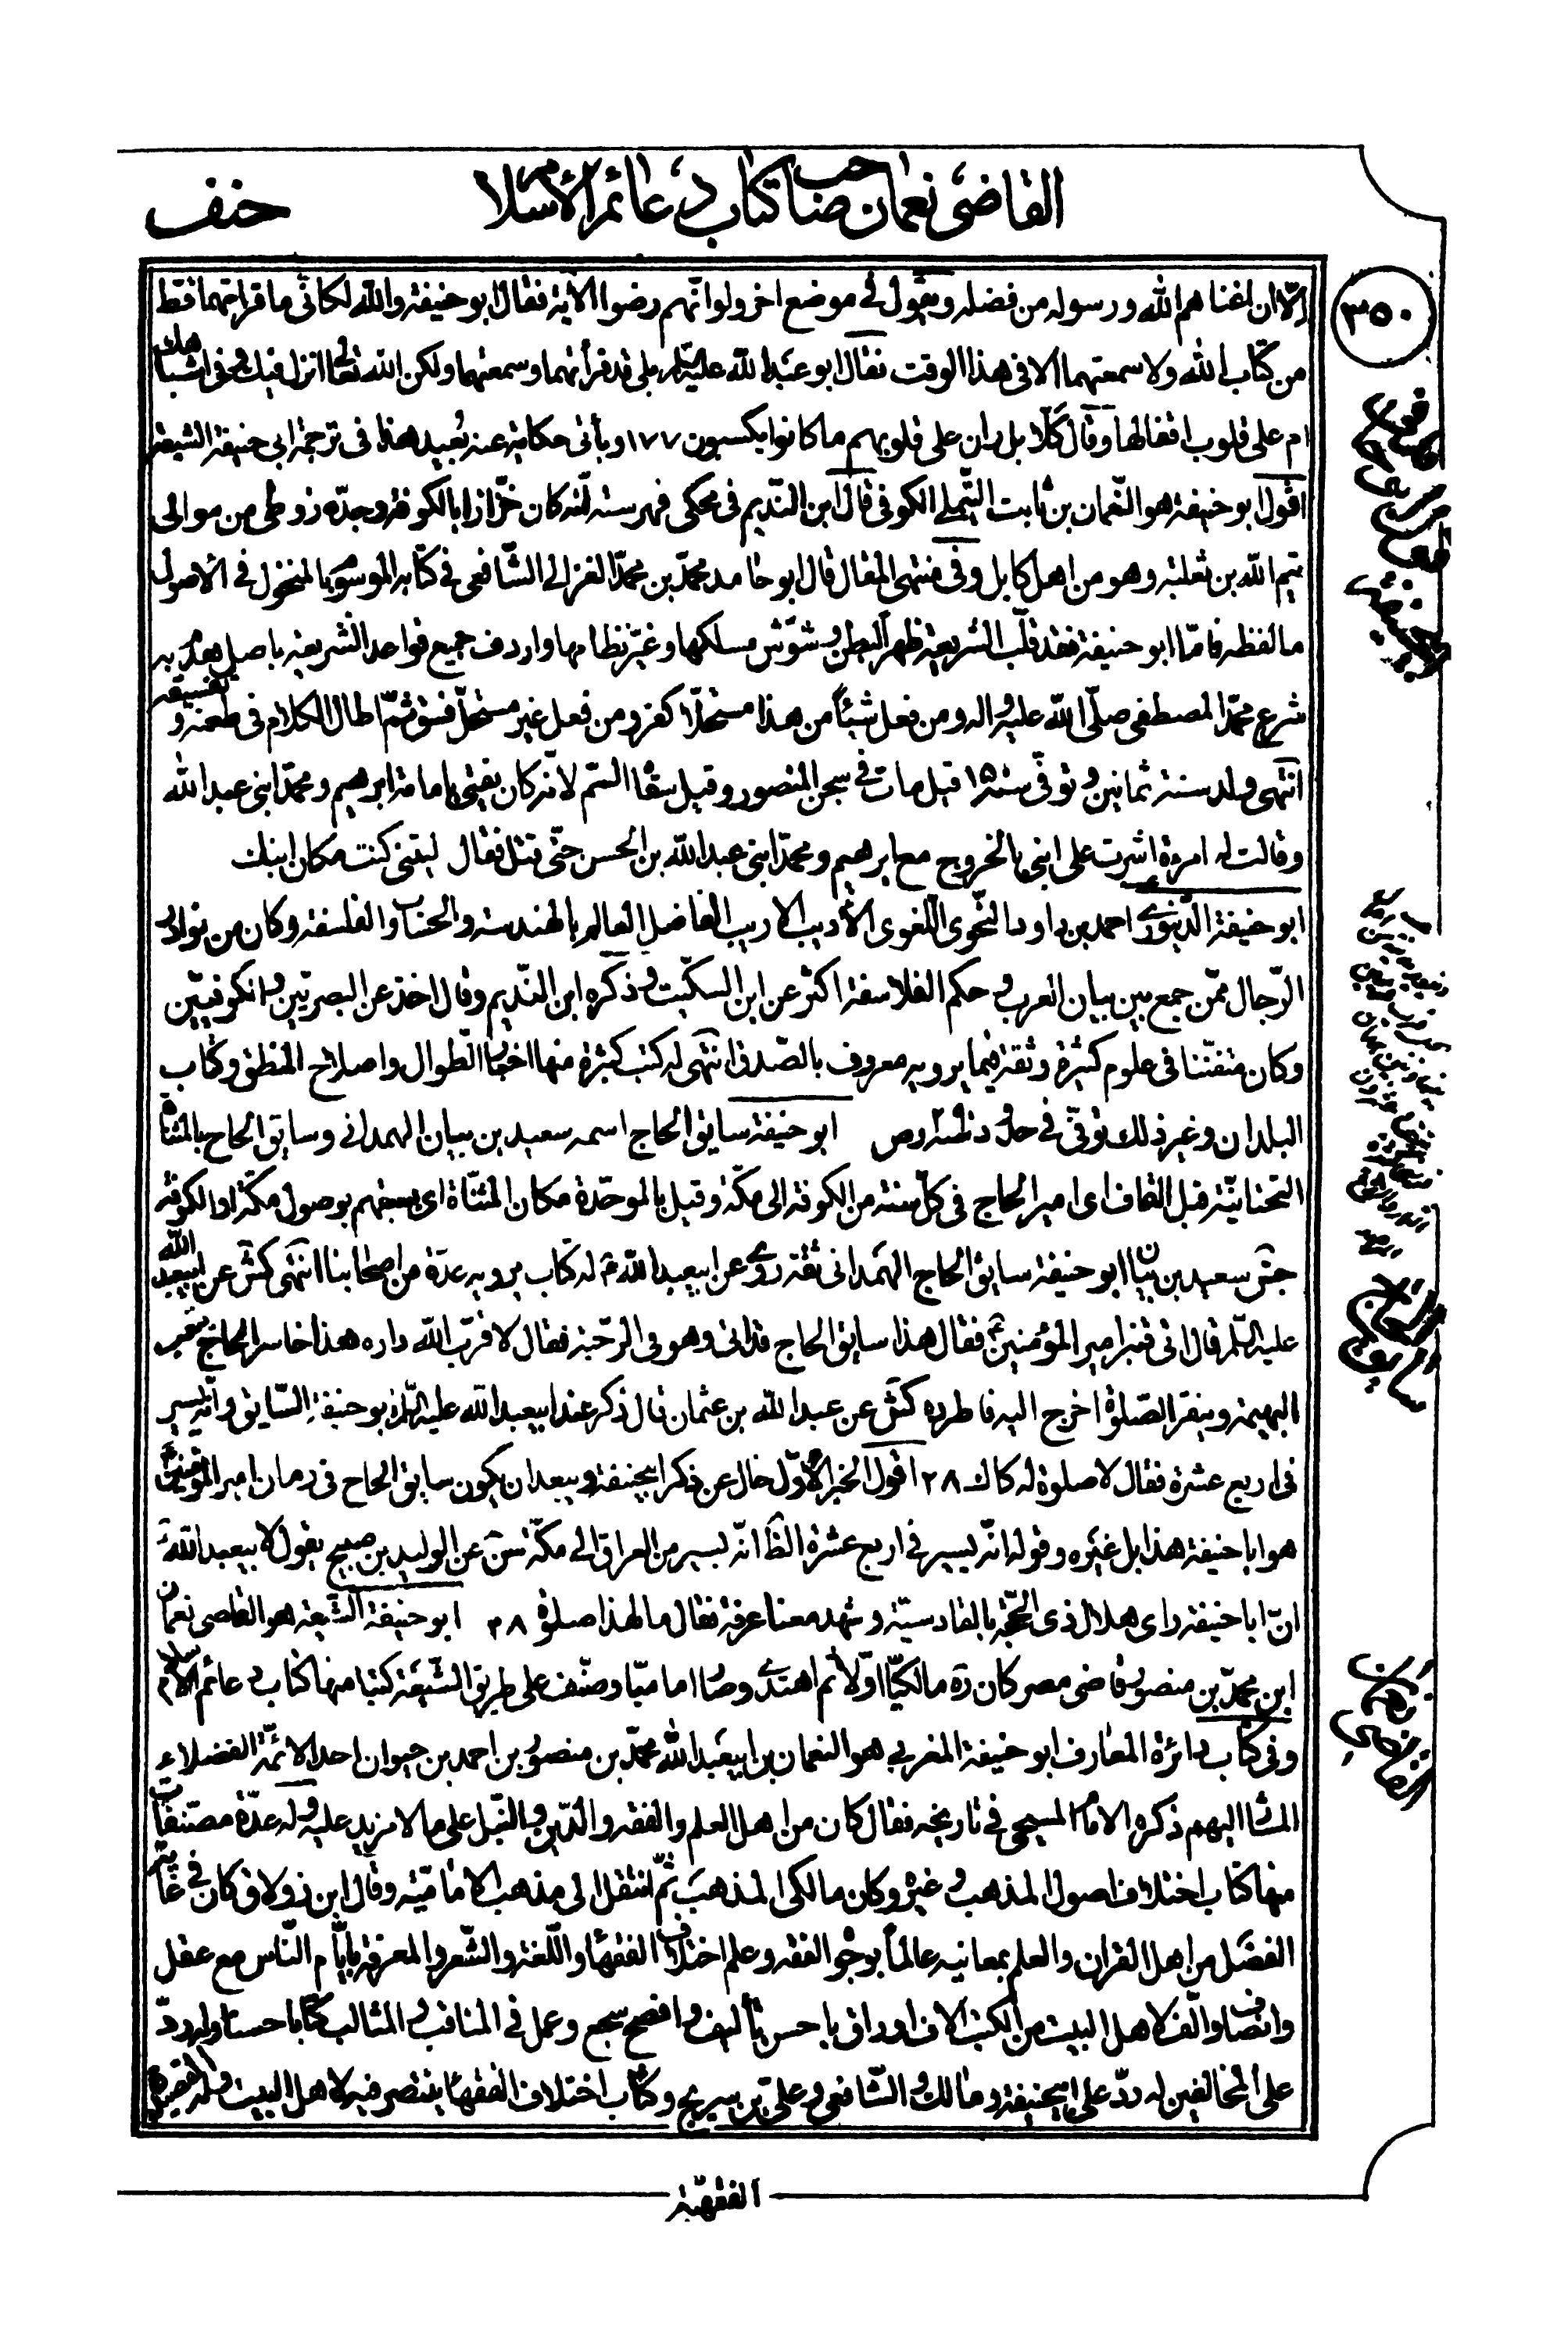 القاضى نعمان صاحب كتاب دعائم الأسلام
حنف
٣٥٠
الّا ان اغناهم الله ورسوله من فضله ويقول فى موضع اخر ولو انّهم رضوا الأية فقال ابو حنيفة والله لكانّى ما قراتهما قط
من كتاب الله ولا سمعتهما الا فى هذا الوقت فقال ابو عبد الله عليه السّلم بلى قد قرأتهما وسمعتهما ولكن الله تعالى انزل فيك وفى اشباهك
ام على قلوب اقفالها وقال كلّا بل ران على قلوبهم ما كانوا يكسبون ١٧٧ ويأتى حكاية عنه بُعيد هذا فى ترجمة ابى حنيفة الشيعة
اقول ابو حنيفة هو النّعمان بن ثابت التّيملى الكوفى قال ابن النّديم فى محكى فهرسته انّه كان خزّازا بالكوفة وجدّه زوطى من موالى
تيم الله بن ثعلبة وهو من اهل كابل وفى منتهى المقال قال ابو حامد محمّد بن محمّد الغزالى الشّافعى فى كتابه الموسوم بالمنخول فى الاصول
ما لفظه فامّا ابو حنيفة فقد قلّب الشريعة ظهر البطن وشوّش مسلكها وغيّر نظامها واردف جميع قواعد الشريعة باصل هدم به
شرع محمّد المصطفى صلّى الله عليه واله ومن فعل شيئاً من هذا مستحلّا كفر ومن فعل غير مستحلّ فسق ثمّ اطال الكلام فى طعنه وتفسيقه
انتهى ولد سنة ثمانين وتوفّى سنة ١٥٠ قيل مات فى سجن المنصور وقيل سقاه السّم لانّه كان يفتى بامامة ابرهيم ومحمّد ابنى عبد الله
وقالت له امرءة اشرت على ابنى بالخروج مع ابرهيم ومحمّد ابنى عبد الله بن الحسن حتّى قتل فقال ليتنى كنت مكان ابنك
ابو حنيفة الدّينورى احمد بن داود النّحوى اللّغوى الأديب الاريب الفاضل العالم بالهندسة والحساب والفلسفة وكان من نوادر
الرّجال ممّن جمع بين بيان العرب وحكم الفلاسفة اكثر عن ابن السكّيت وذكره ابن النّديم وقال اخذ عن البصريّين والكوفيّين
وكان متفنّنا فى علوم كثيرة وثقة فيما يرويه معروف بالصّدق انتهى له كتب كثيرة منها اخبار الطّوال واصلاح المنطق وكتاب
البلدان وغير ذلك توفّى فى حدود ابو حنيفة سايق الحاج اسمه سعيد بن بيان الهمدانى وسايق الحاج بالمثناة
التحتانيّة قبل القاف اى امير الحاج فى كلّ سنة من الكوفة الى مكّة وقيل بالموحّدة مكان المثنّاة اى يسبقهم بوصول مكّة او الكوفة
جش سعيد بن بيان ابو حنيفة سايق الحاج الهَمدانى ثقة روى عن ابيعبد الله ع له كتاب يرويه عدّة من اصحابنا انتهى كش عن ابيعبد الله
عليه السّلم قال اتى قنبر امير المؤمنين ع فقال هذا سايق الحاج قد اتى وهو فى الرّحبة فقال لا قرّب الله داره هذا خاسر الحاج يتعب
البهيمة وينقر الصّلوة اخرج اليه فاطرده كش عن عبد الله بن عثمان قال ذكر عند ابيعبد الله عليه السّلم ابو حنيفة السّايق وانّه يسير
فى اربع عشرة فقال لا صلوة له كا ك ٢٨ اقول الخبر الأوّل خال عن ذكر ابيحنيفة ويبعد ان يكون سايق الحاج فى زمان امير المؤمنين ع
هو ابا حنيفة هذا بل غيره وقوله انّه يسير فى اربع عشرة الظّ انّه يسير من العراق الى مكّة عن الوليد بن صبيح يقول لابيعبد الله ع
انّ ابا حنيفة راى هلال ذى الحجّة بالقادسيّة وشهد معنا عرفة فقال ما لهذا صلوة ٣٨ ابو حنيفة الشّيعة هو القاضى نعمان
ابن محمّد بن منصور قاضى مصر كان ره مالكيّا اوّلا ثم اهتدى وصار اماميّا وصنّف على طريق الشّيعة كتبا منها كتاب دعائم الاسلام
وفى كتاب دائرة المعارف ابو حنيفة المغربى هو النعمان بن ابيعبد الله محمّد بن منصور بن احمد بن حيوان احد الائمّة الفضلاء
المشار اليهم ذكره الامام المسبحى فى تاريخه فقال كان من اهل العلم والفقه والدّين والنّبل على ما لا مزيد عليه وله عدّة مصنّفات
منها كتاب اختلاف اصول المذهب وغيره وكان مالكى المذهب ثمّ انتقل الى مذهب الاماميّة وقال ابن زولاق كان فى غاية
الفضل من اهل القران والعلم بمعانيه عالماً بوجوه الفقه وعلم اختلاف الفقهاء واللّغة والشّعر والمعرفة بايّام النّاس مع عقل
وانصاف والّف لاهل البيت من الكتب الاف اوراق باحسن تأليف وافصح سجع وعمل فى المناقب والمثالب كتابا حسنا وله ردّ
على المخالفين له ردّ على ابيحنيفة ومالك والشّافعى وعلى بن سريج وكتاب اختلاف الفقهاء ينتصر فيه لاهل البيت وله القصيدة
الفقهيّة
سايق الحاج
القاضى نعمان